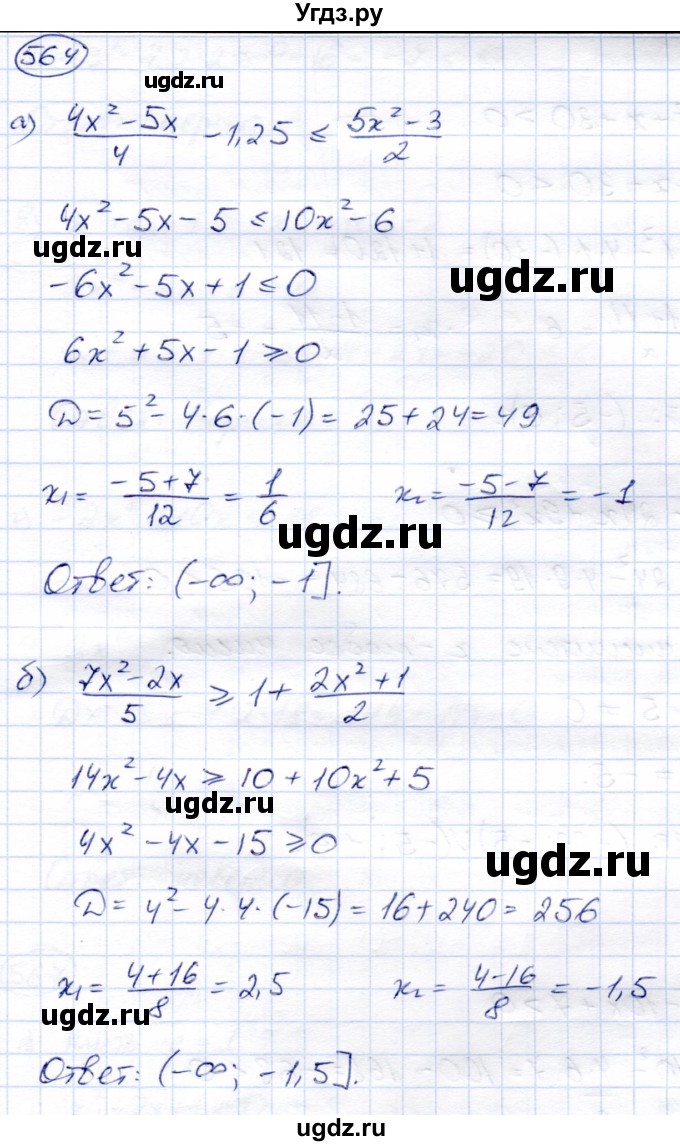 Угдз.ру
564
ugdz.ru
а) (4x² − 5x)/4 − 1,25 ≤ (5x² − 3)/2
4x² − 5x − 5 ≤ 10x² − 6
ugdz.ru
ugdz.ru
−6x² − 5x + 1 ≤ 0
6x² + 5x − 1 ⩾ 0
D = 5² − 4·6·(−1) = 25 + 24 = 49
x₁ = (−5+7)/12 = 1/6 x₂ = (−5−7)/12 = −1
ugdz.ru
Ответ: (−∞; −1].
б) (7x² − 2x)/5 ⩾ 1 + (2x² + 1)/2
14x² − 4x ⩾ 10 + 10x² + 5
ugdz.ru
4x² − 4x − 15 ⩾ 0
ugdz.ru
D = 4² − 4·4·(−15) = 16 + 240 = 256
x₁ = (4+16)/8 = 2,5 x₂ = (4−16)/8 = −1,5
ugdz.ru
Ответ: (−∞; −1,5].
ugdz.ru